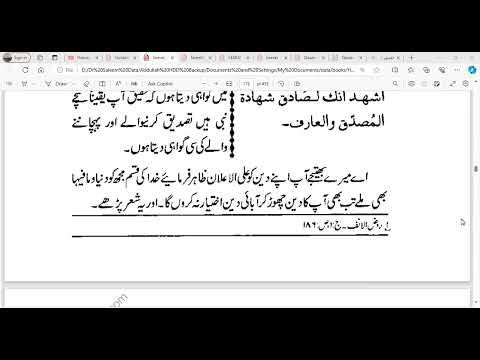 D:/Dr%20Saleem%20Data/Abdullah%20HDD%20Backup/Documents%20and%20Settings/My%20Documents/data/books/
اشهد انك لصادق شهادة
المُصدّق والعارف.
میں گواہی دیتا ہوں کہ تحقیق آپ یقیناً سچے
نبی ہیں تصدیق کرنیوالے اور پہچاننے
والے کی سی گواہی دیتا ہوں۔
اے میرے بھتیجے آپ اپنے دین کو علی الاعلان ظاہر فرمائیے خدا کی قسم مجھ کو دنیا و مافیہا
بھی ملے تب بھی آپ کا دین چھوڑ کر آبائی دین اختیار نہ کروں گا۔ اور یہ شعر پڑھے۔
روض الانف۔ ج:۱، ص:۱۸۶